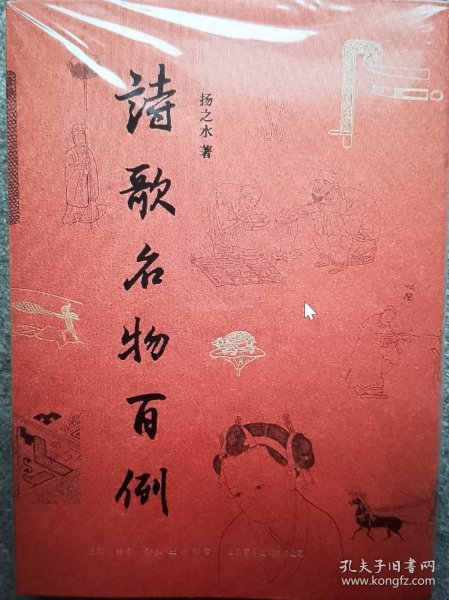 詩歌名物百例
扬之水 著
孔夫子旧书网
www.kongfz.com